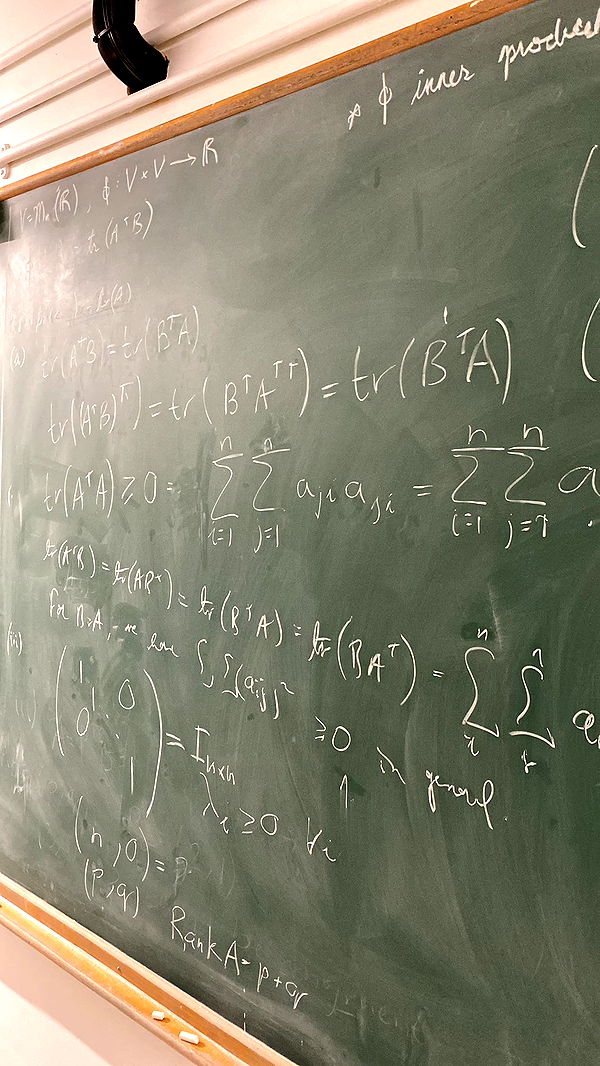 * ϕ inner product
V = M_n(ℝ), ϕ : V × V → ℝ
= tr(AᵀB)
(a) tr(AᵀB) = tr(BᵀA)
tr((AᵀB)ᵀ) = tr(BᵀAᵀᵀ) = tr(BᵀA)
tr(AᵀA) ≥ 0 = ∑_{i=1}^{n} ∑_{j=1}^{n} a_{ji} a_{ji} = ∑_{i=1}^{n} ∑_{j=1}^{n} a
tr(AᵀB) = tr(ABᵀ) = tr(BᵀA) = tr(BAᵀ) = ∑ ∑
for B=A, we have ∑∑(a_{ij})² ≥ 0 in general.
(iii)
(1 1 0 0 ⋱ 1) = I_{n×n}
λ_i ≥ 0 ∀i
(n, 0) =
(p, q)
Rank A = p + q